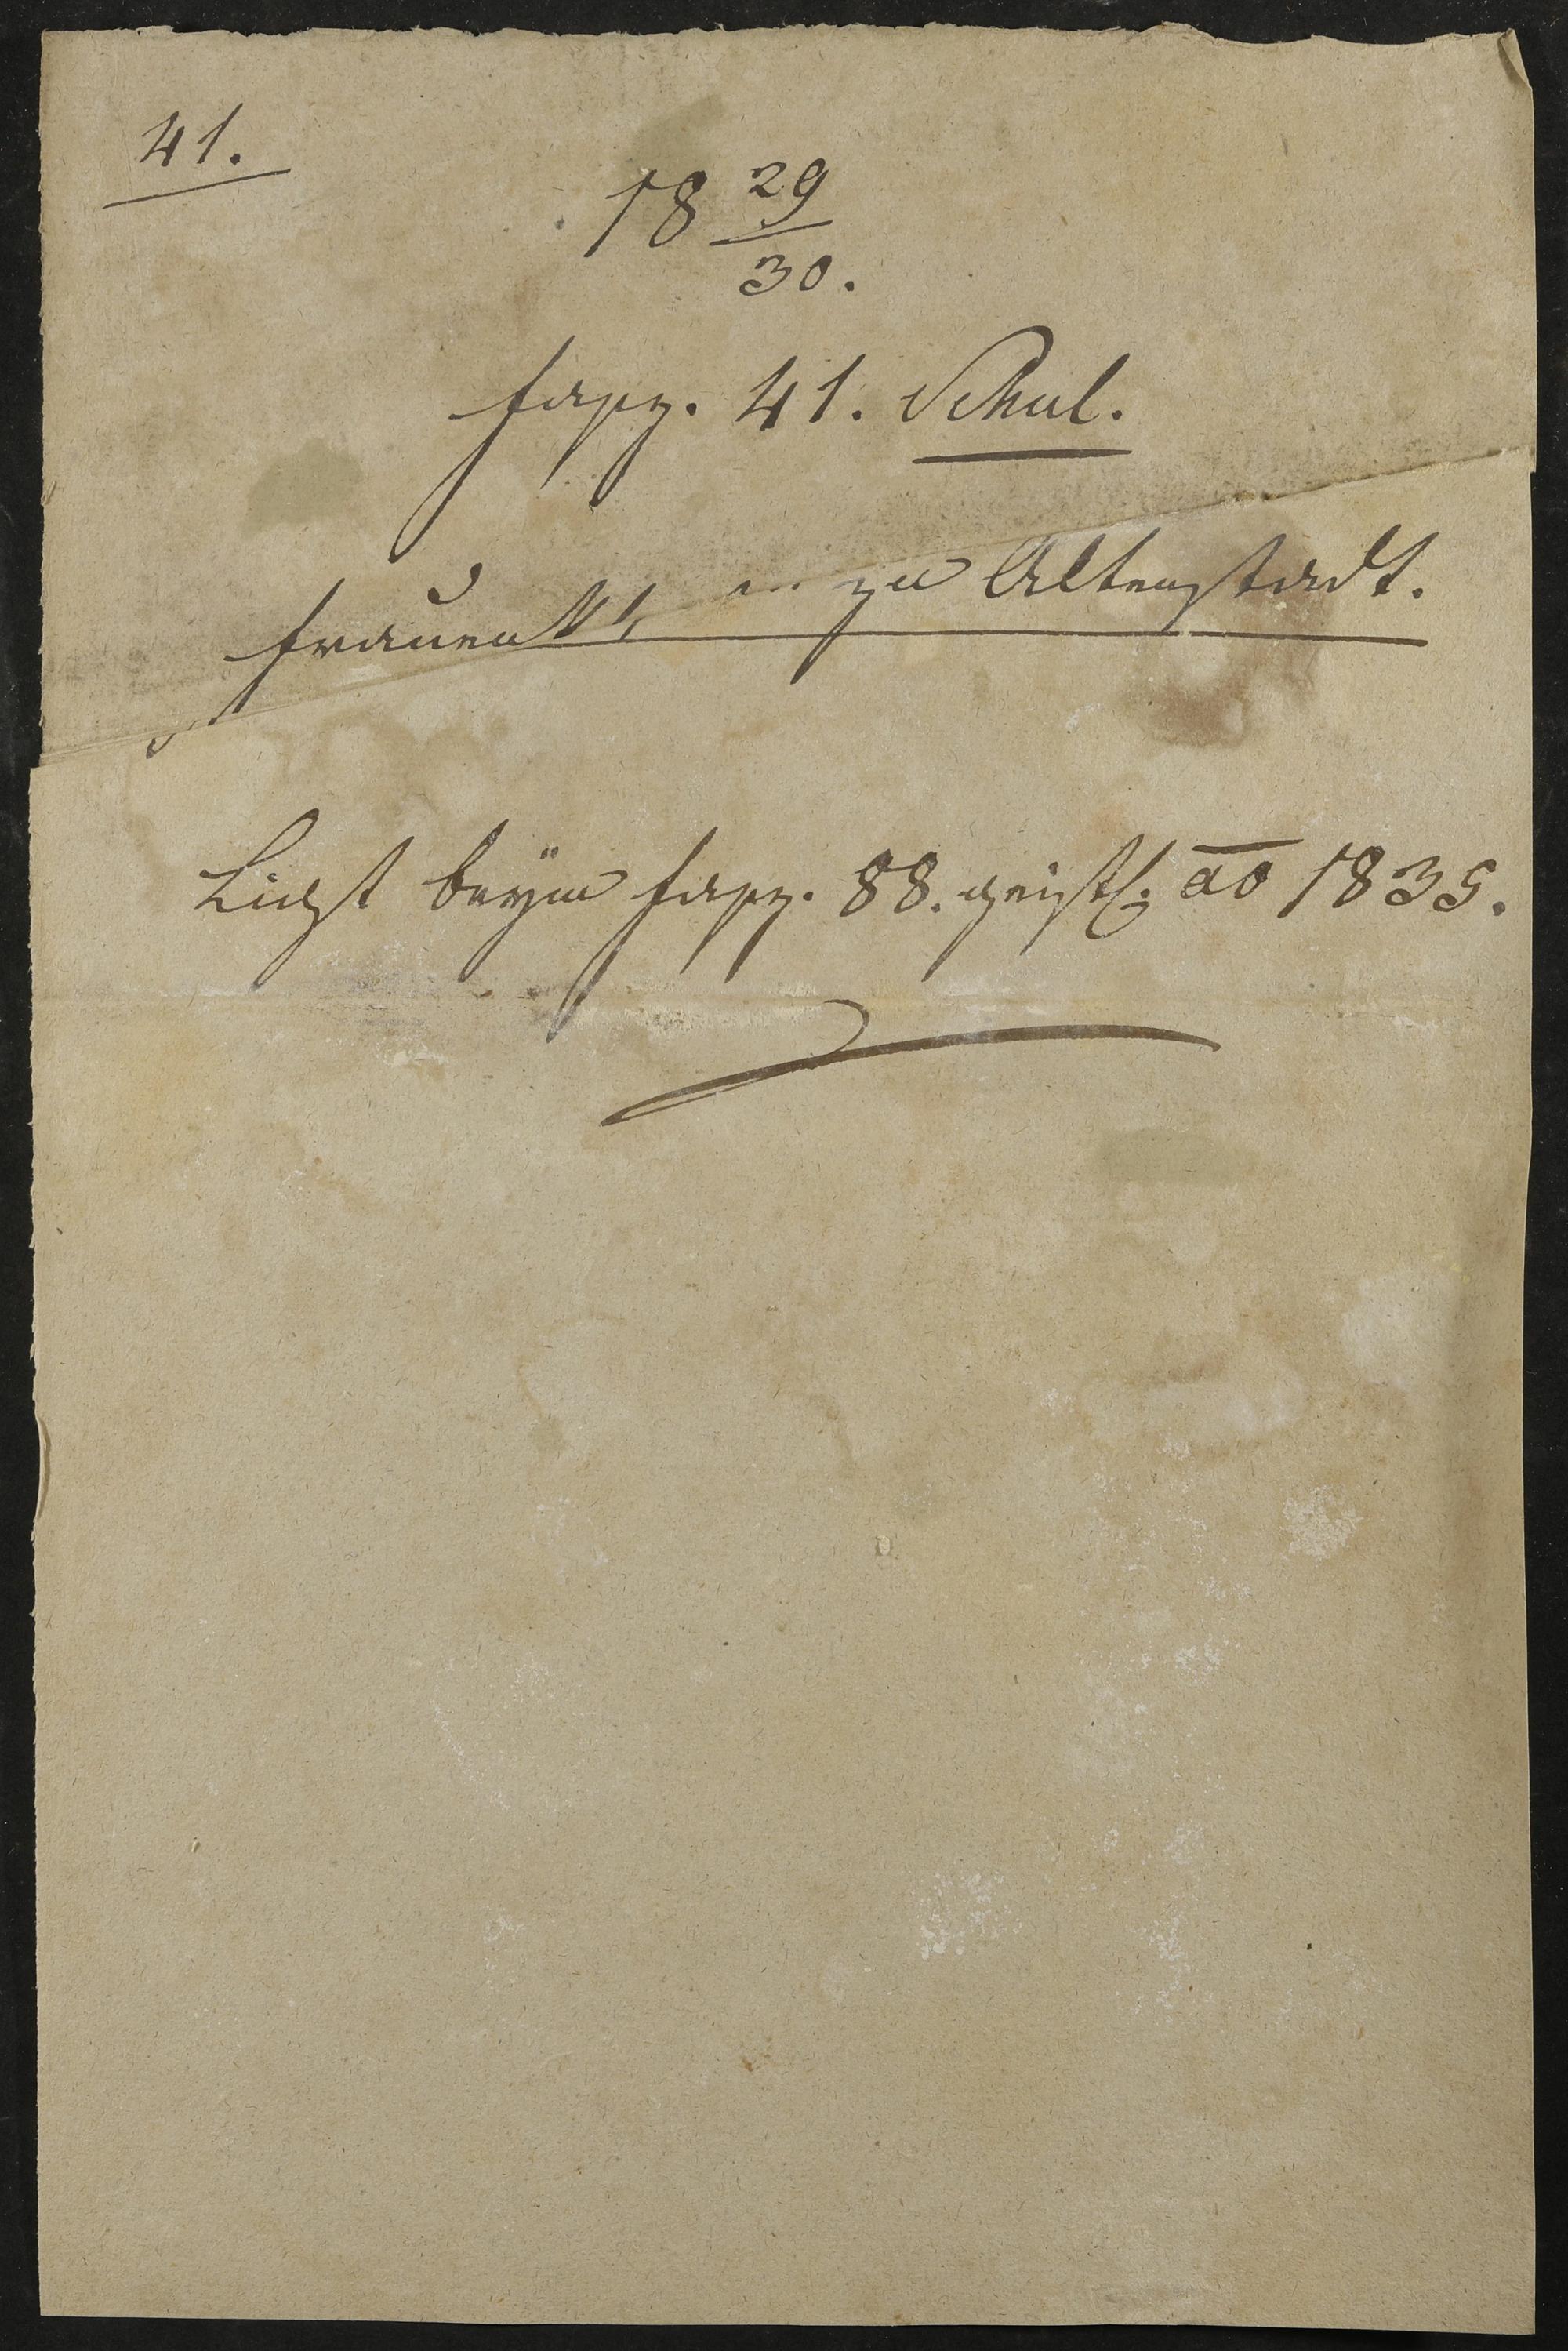 41.
18 29/30.
fasz. 41. Schul.
zu Altenstadt.
Liegt beÿm fasz. 88. geistl. ao 1835.